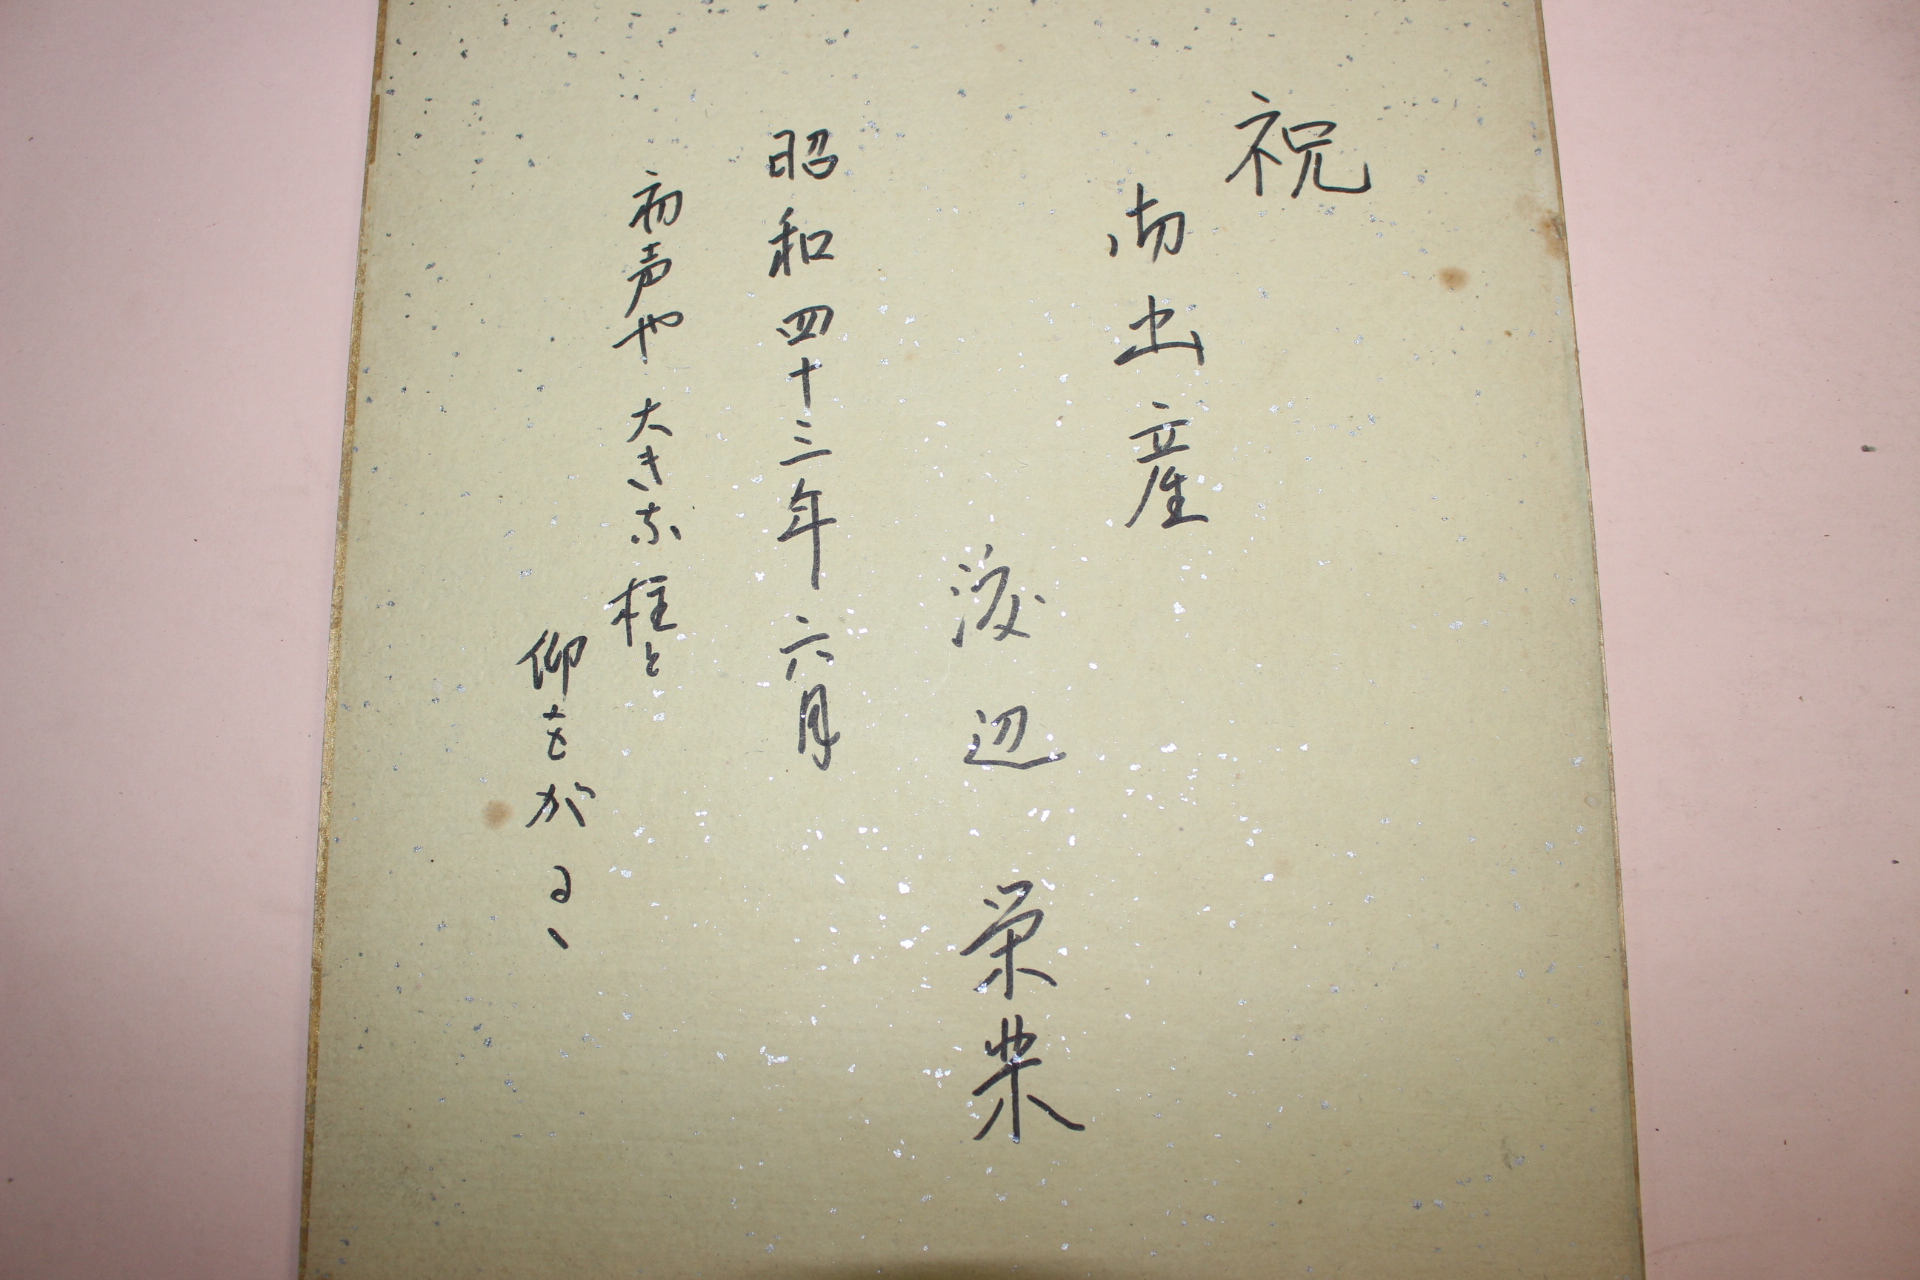 祝
御出産
渡辺栄
昭和四十三年六月
初声や大きな柱と
仰をがるゝ